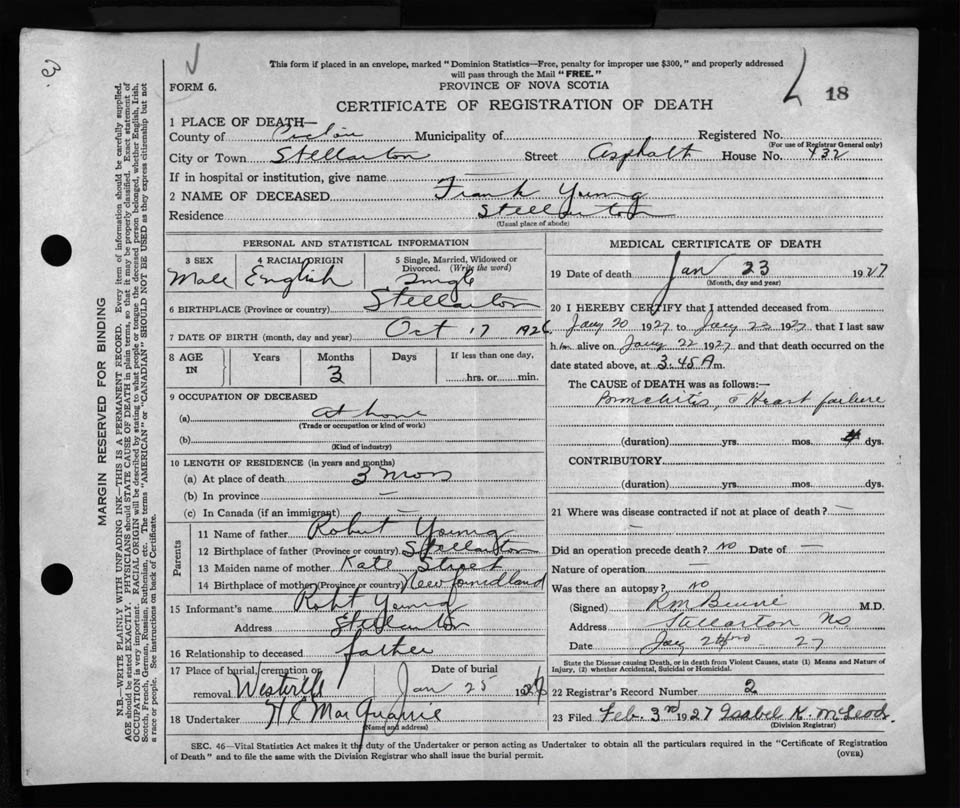 3
This form if placed in an envelope, marked "Dominion Statistics—Free, penalty for improper use $300," and properly addressed
will pass through the Mail "FREE."
FORM 6.
PROVINCE OF NOVA SCOTIA
18
CERTIFICATE OF REGISTRATION OF DEATH
1 PLACE OF DEATH—
County of Municipality of Registered No.
(For use of Registrar General only)
City or Town Stellarton Street Asphalt House No. 432
If in hospital or institution, give name —
2 NAME OF DECEASED Frank Young
Residence Stellarton
(Usual place of abode)
PERSONAL AND STATISTICAL INFORMATION
3 SEX Male
4 RACIAL ORIGIN English
5 Single, Married, Widowed or
Divorced. (Write the word)
Single
6 BIRTHPLACE (Province or country) Stellarton
7 DATE OF BIRTH (month, day and year) Oct 17 1926
8 AGE IN Years Months 3 Days If less than one day,
hrs. or min.
9 OCCUPATION OF DECEASED
(a) At home
(Trade or occupation or kind of work)
(b)
(Kind of industry)
10 LENGTH OF RESIDENCE (in years and months)
(a) At place of death 3 mos
(b) In province —
(c) In Canada (if an immigrant) —
Parents
11 Name of father Robert Young
12 Birthplace of father (Province or country) Stellarton
13 Maiden name of mother Kate
14 Birthplace of mother (Province or country) Newfoundland
15 Informant's name Robt Young
Address Stellarton
16 Relationship to deceased father
17 Place of burial, cremation or Date of burial
removal Jan 25 192
18 Undertaker H C MacQuarrie
(Name and address)
MEDICAL CERTIFICATE OF DEATH
19 Date of death Jan 23 1927
(Month, day and year)
20 I HEREBY CERTIFY that I attended deceased from
Jany 20 1927 to Jany 22 1927 that I last saw
him alive on Jany 22 1927 and that death occurred on the
date stated above, at 3.45 A m.
The CAUSE of DEATH was as follows:—
Bronchitis, Heart failure
(duration) yrs. mos. dys.
CONTRIBUTORY
(duration) yrs. mos. dys.
21 Where was disease contracted if not at place of death? —
—
Did an operation precede death? No Date of —
Nature of operation —
Was there an autopsy? No
(Signed) M.D.
Address Stellarton NS
Date Jany 27
State the Disease causing Death, or in death from Violent Causes, state (1) Means and Nature of
Injury, (2) whether Accidental, Suicidal or Homicidal.
22 Registrar's Record Number 2
23 Filed Feb. 3rd 1927 Isabel K. McLeod
(Division Registrar)
SEC. 46—Vital Statistics Act makes it the duty of the Undertaker or person acting as Undertaker to obtain all the particulars required in the "Certificate of Registration
of Death" and to file the same with the Division Registrar who shall issue the burial permit.
(OVER)
MARGIN RESERVED FOR BINDING
N.B.—WRITE PLAINLY WITH UNFADING INK—THIS IS A PERMANENT RECORD. Every item of information should be carefully supplied.
AGE should be stated EXACTLY. PHYSICIANS should STATE CAUSE OF DEATH in plain terms, so that it may be properly classified. Exact statement of
OCCUPATION is very important. RACIAL ORIGIN will be described by stating to what people or tongue the deceased person belonged, whether English, Irish,
Scotch, French, German, Russian, Ruthenian, etc. The terms "AMERICAN" or "CANADIAN" SHOULD NOT BE USED as they express citizenship but not
a race or people. See instructions on back of Certificate.